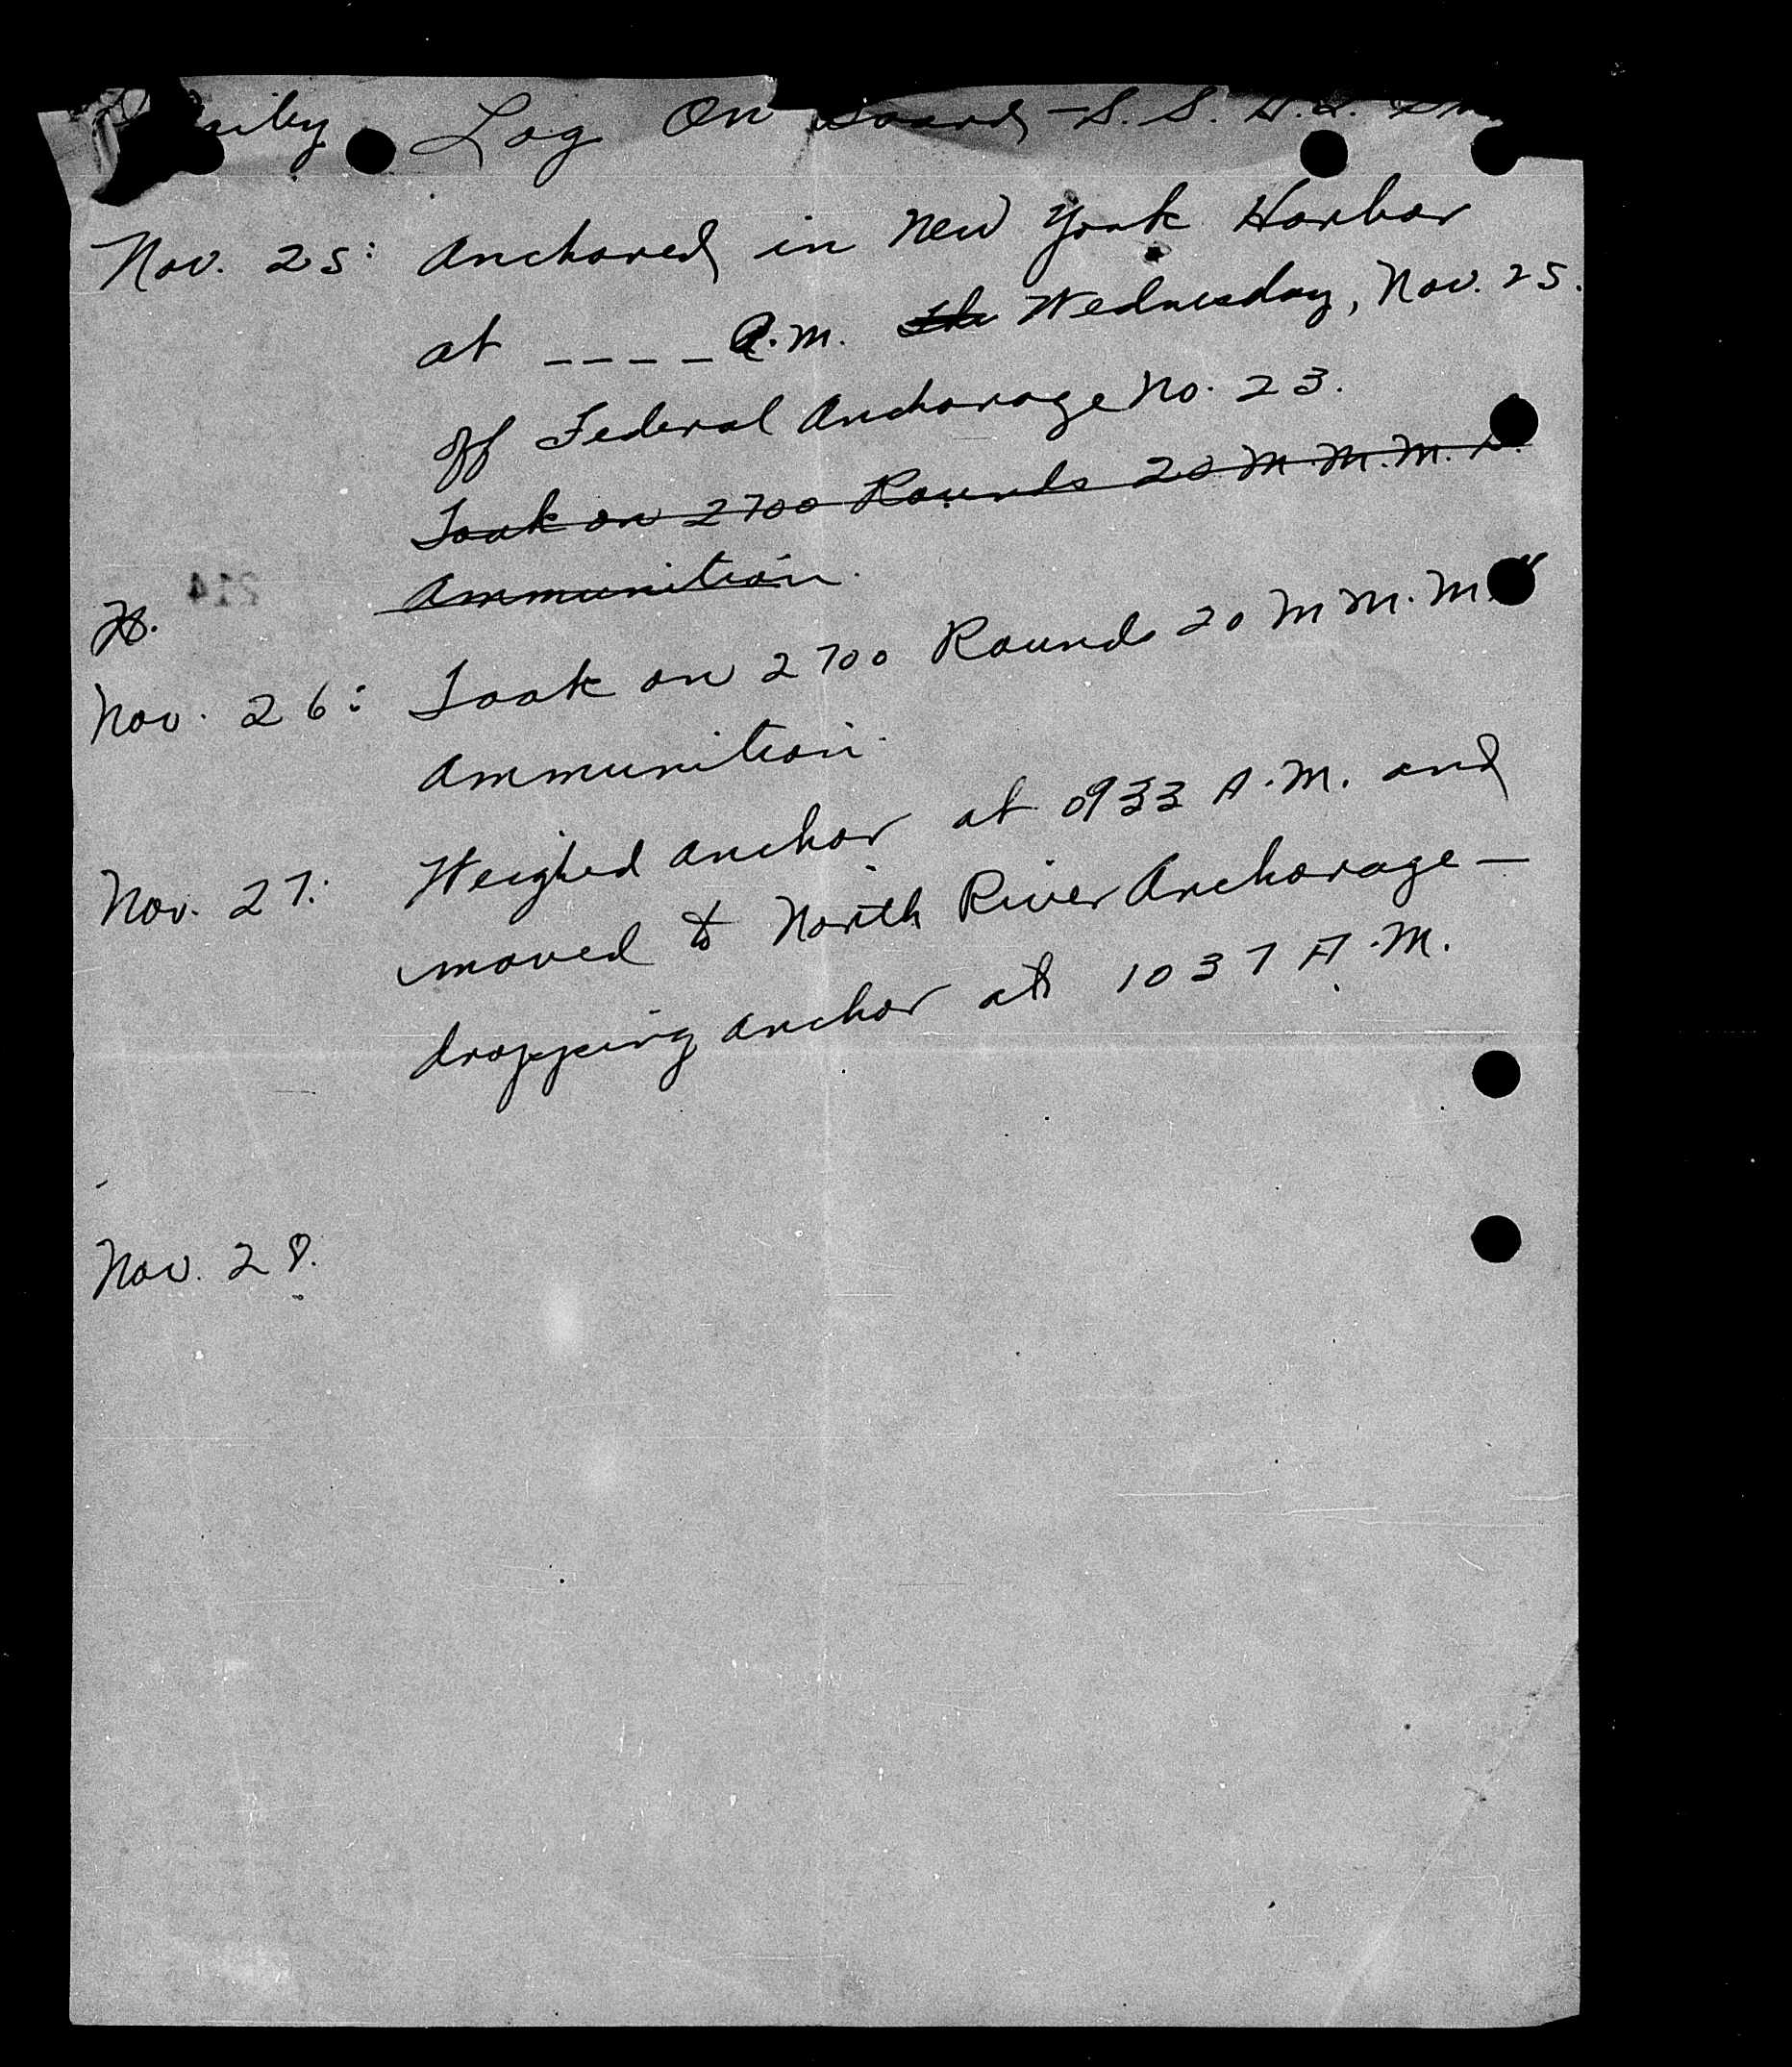 Log On Board - S. S. H. L.
Nov. 25: Anchored in New York Harbor
at ---- A.M. the Wednesday, Nov. 25.
off Federal Anchorage No. 23.
Took on 2700 Rounds 20 M.M.M.
Ammunition.
214
Nov. 26: Took on 2700 Rounds 20 M M.M.
Ammunition.
Nov. 27: Weighed anchor at 0933 A.M. and
moved to North River Anchorage—
dropping anchor at 1037 A.M.
Nov. 28.